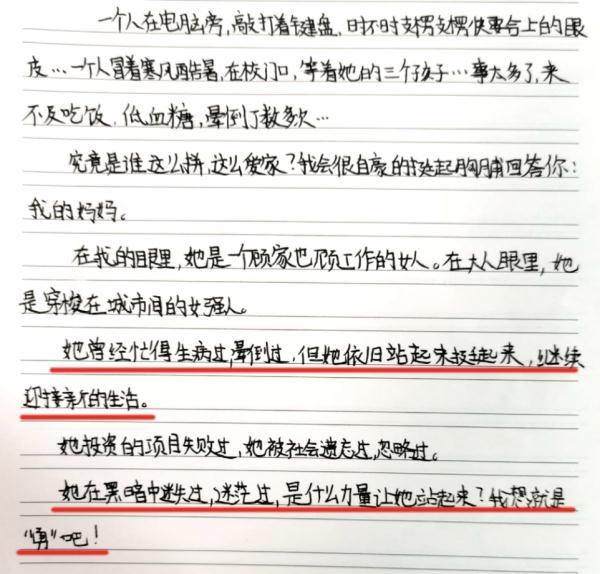 一个人在电脑旁,敲打着键盘,时不时支楞支楞快要合上的眼
皮…一个人冒着寒风酷暑,在校门口,等着她的三个孩子…事太多了,来
不及吃饭,低血糖,晕倒了数多次…
究竟是谁这么拼,这么爱家?我会很自豪的挺起胸脯回答你:
我的妈妈。
在我的眼里,她是一个顾家也顾工作的女人。在大人眼里,她
是穿梭在城市间的女强人。
她曾经忙得生病过,晕倒过,但她依旧站起来挺起来,继续
迎接新的生活。
她投资的项目失败过,她被社会遗忘过,忽略过。
她在黑暗中迷失过,迷茫过,是什么力量让她站起来?我想就是
"勇"吧!